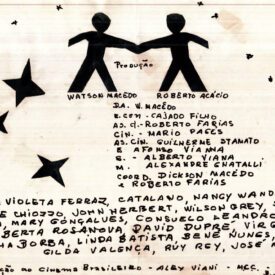 PRODUÇÃO
WATSON MACEDO ROBERTO ACÁCIO
DA. W. MACEDO
E. COM - CAJADO FILHO
AS. D. - ROBERTO FARIAS
CIN. - MARIO PAGES
AS. CIN. GUILHERME STAMATO
E AFONSO VIANNA
S. - ALBERTO VIANA
M. - ALEXANDRE GNATALLI
COORD. DICKSON MACEDO
E ROBERTO FARIAS
VIOLETA FERRAZ, CATALANO, NANCY WAND
E CHIOZZO, JOHN HERBERT, WILSON GREY, S
O, MARY GONÇALVES, CONSUELO LEANDRO
BERTA ROSANOVA, DAVID DUPRÉ, VIRG
HA BORBA, LINDA BATISTA, BENÉ NUNES,
GILDA VALENÇA, RUY REY, JOSÉ
ÇÃO AO CINEMA BRASILEIRO - ALEX VIANI - MCC.